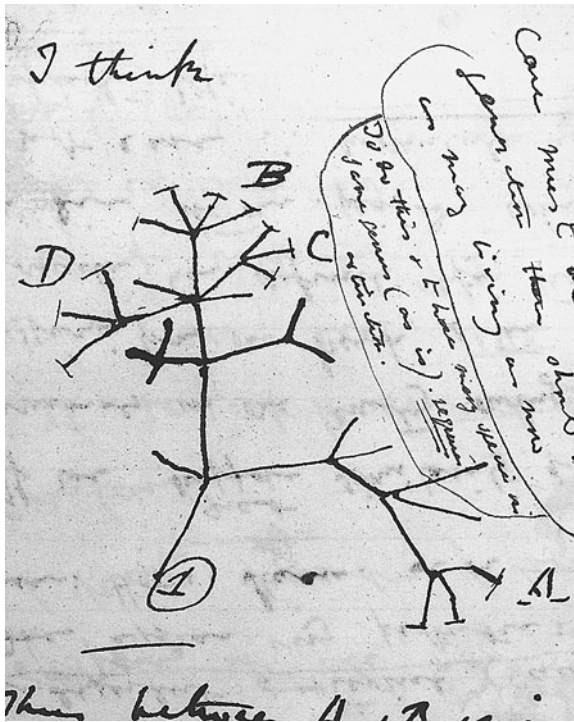 I think
B
D
C
A
1
Case must be
generation then should
as many living as now
To do this & to have many species in
same genus (as is). requires
extinction.
Thus between A & B